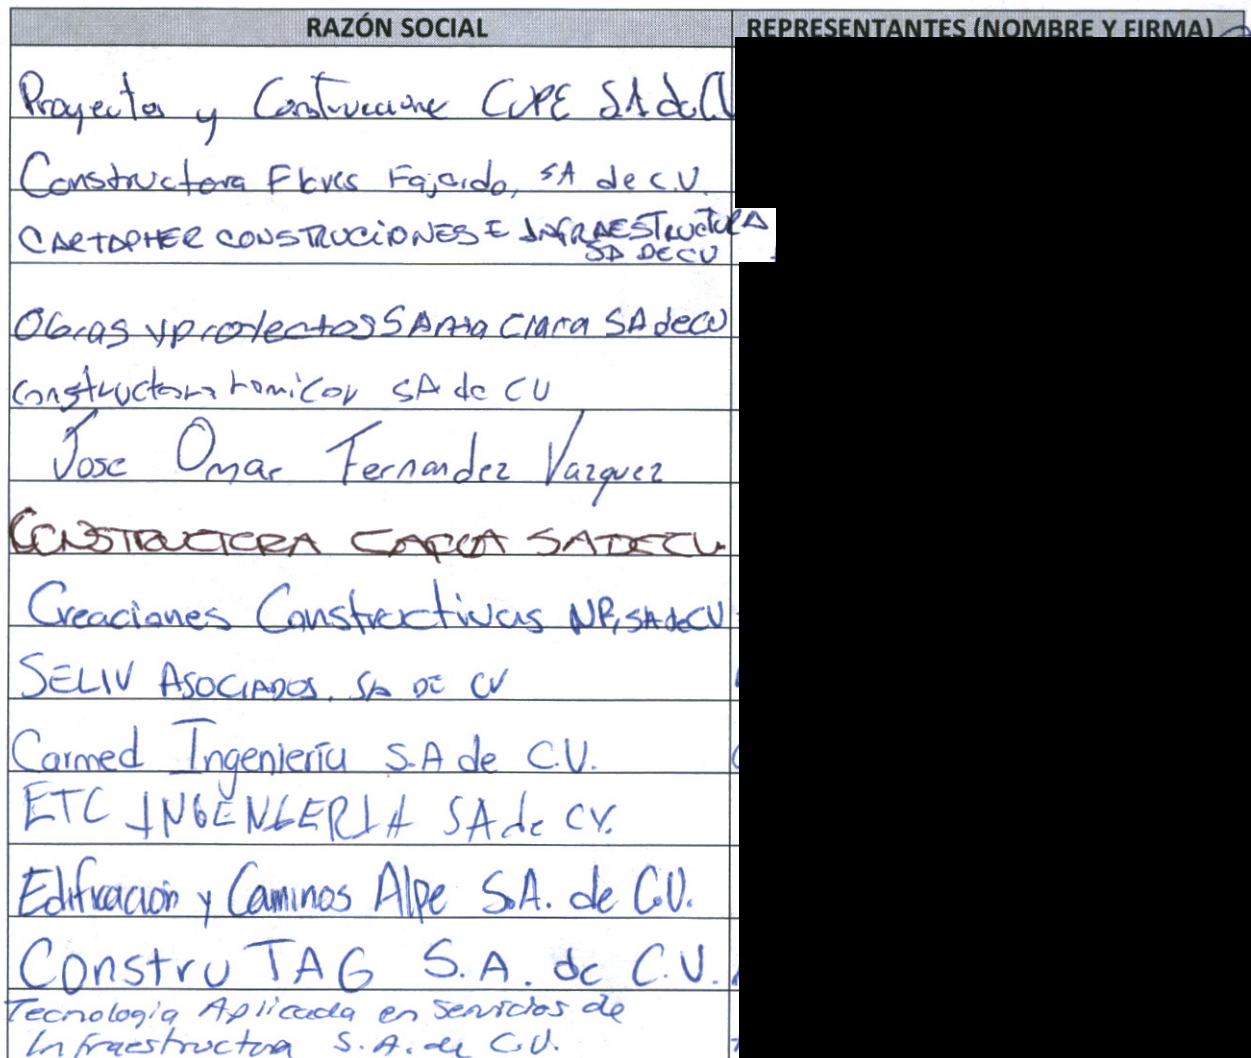 RAZÓN SOCIAL REPRESENTANTES (NOMBRE Y FIRMA)
Proyectos y Construccione CUPE SA de CV
Constructora Flores Fajardo, SA de C.V.
CARTOPHER CONSTRUCIONES E INFRAESTRUCTURA
SA DE CV
Obras y proyectos SAnta Clara SA de CV
Constructora SA de CV
Jose Omar Fernandez Vazquez
CONSTRUCTORA SA DE CV.
Creaciones Constructivas NR, SA de CV
SELIV ASOCIADOS, SA DE CV
Carmed Ingeniería S.A de C.V.
ETC INGENIERIA SA de CV.
Edificación y Caminos Alpe S.A. de C.V.
Constru TAG S.A. de C.V.
Tecnologia Aplicada en Servicios de
Infraestructura S.A. de C.V.